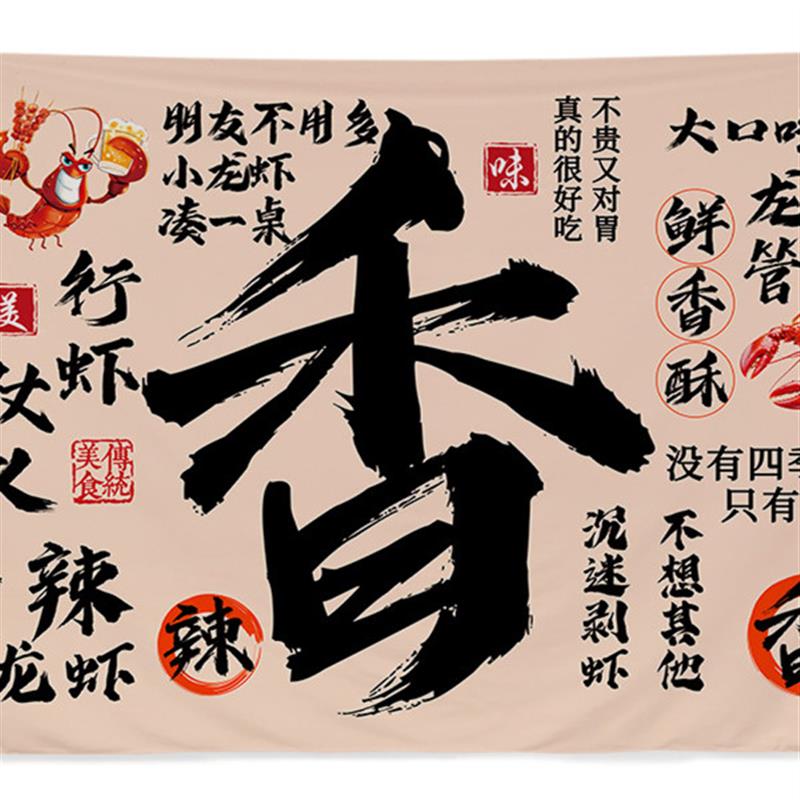 朋友不用多
小龙虾
凑一桌
味
不贵又对胃
真的很好吃
大口吃
龙
管
鲜
香
酥
美
行
虾
仗
义
傳統
美食
香
没有四季
只有
不想其他
沉迷剥虾
辣
龙虾
辣
香